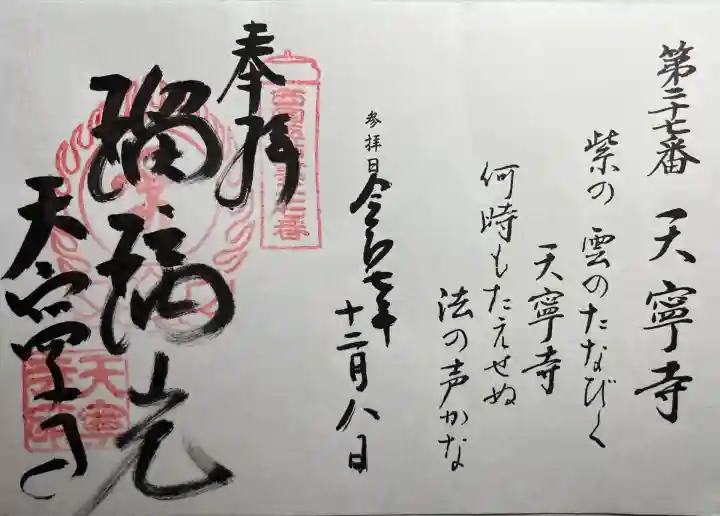 第二十七番 天寧寺
紫の雲のたなびく
天寧寺
何時もたえせぬ
法の声かな
参拝日 令和七年
十二月八日
奉拝
瑠璃光
天寧寺
天寧